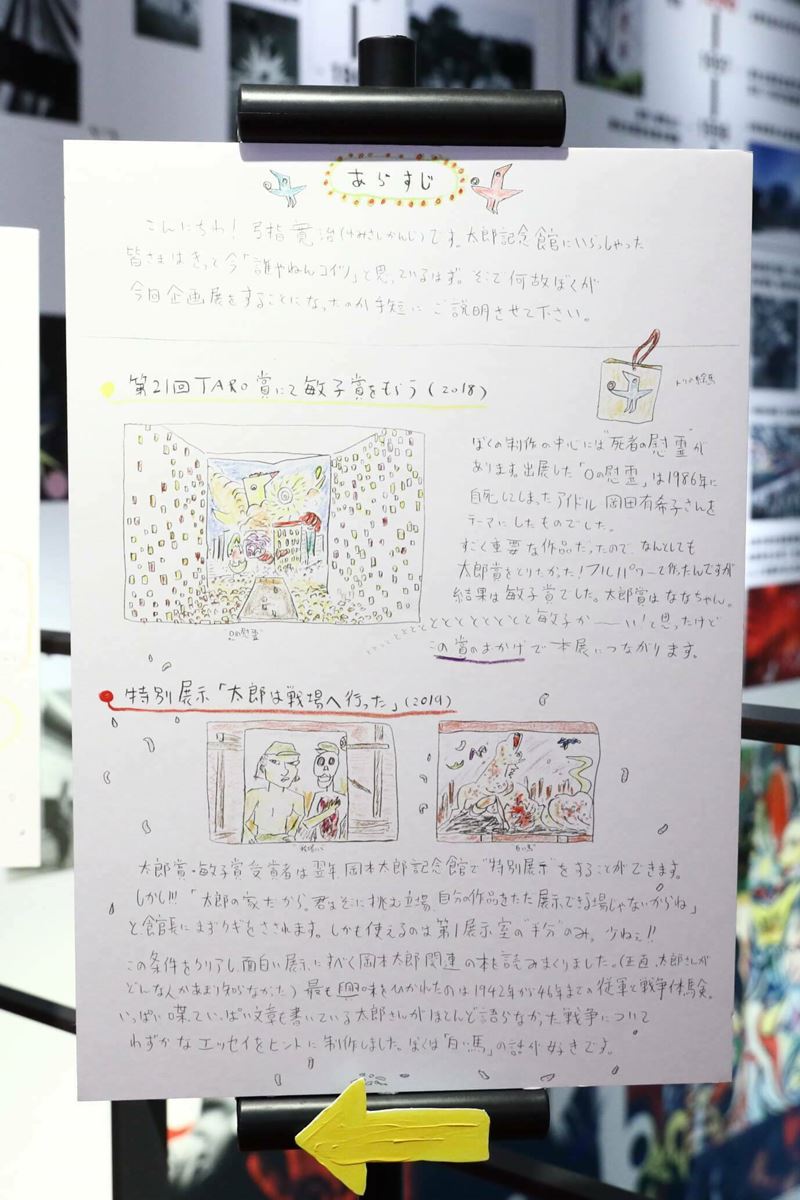 あらすじ
こんにちわ! 弓指寛治(ゆみさしかんじ)です。太郎記念館にいらっしゃった
皆さまはきっと今「誰やねんコイツ」と思っているはず。そこで何故ぼくが
今回企画展をすることになったのか手短に ご説明させて下さい。
第21回TARO賞にて敏子賞をもらう(2018)
トリの絵馬
ぼくの制作の中心には"死者の慰霊"が
あります。出展した「Oの慰霊」は1986年に
自死してしまったアイドル 岡田有希子さんを
テーマにしたものでした。
すごく重要な作品だったので、なんとしても
太郎賞をとりたかった!フルパワーで作ったんですが
結果は敏子賞でした。太郎賞はななちゃん。
ととととととととと敏子か――い!と思ったけど
この賞のおかげで本展につながります。
Oの慰霊
特別展示「太郎は戦場へ行った」(2019)
白い馬
太郎賞・敏子賞受賞者は翌年、岡本太郎記念館で"特別展示"をすることができます。
しかし!!!「太郎の家だから。君はそこに挑む立場、自分の作品をただ展示できる場じゃないからね」
と館長にまずクギをさされます。しかも使えるのは第1展示室の"半分"のみ。少ねえ!!
この条件をクリアし、面白い展示にすべく岡本太郎関連の本を読みまくりました。(正直、太郎さんが
どんな人かあまり知らなかった)最も興味をひかれたのは1942年から46年までの従軍と戦争体験。
いっぱい喋っていっぱい文章も書いている太郎さんがほとんど語らなかった戦争について
わずかなエッセイをヒントに制作しました。ぼくは「白い馬」の話が好きです。